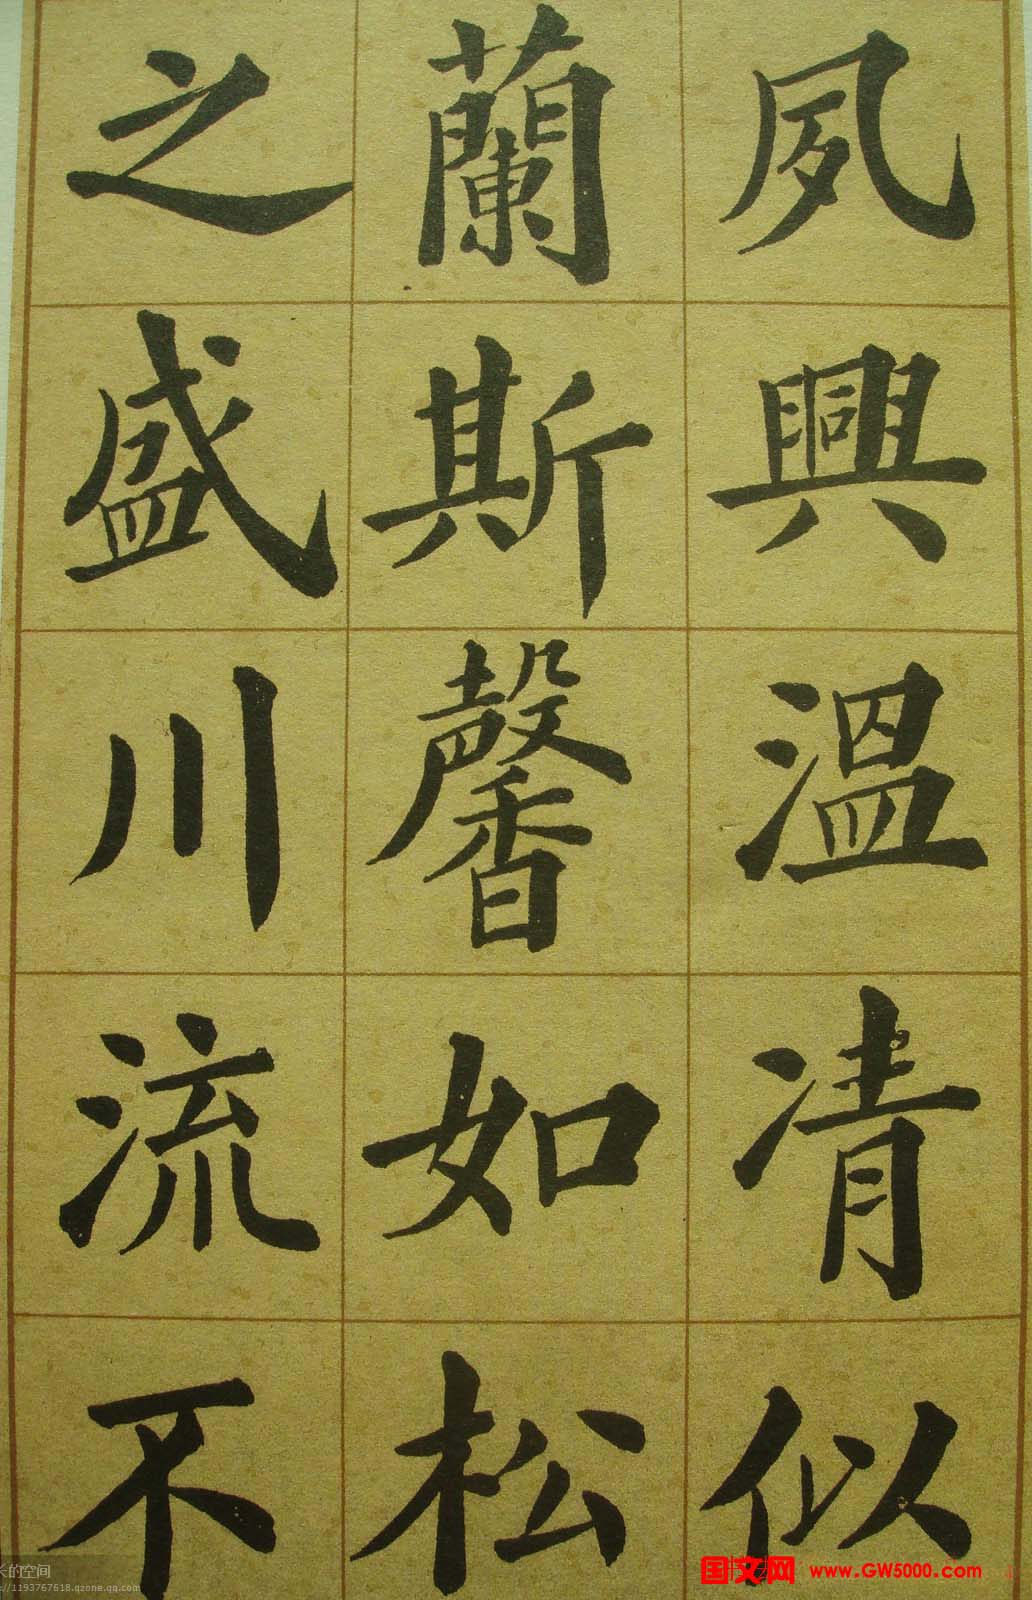 夙興溫凊似
蘭斯馨如松
之盛川流不
长的空间
://1193767618.qzone.qq.com
国文网 www.GW5000.com